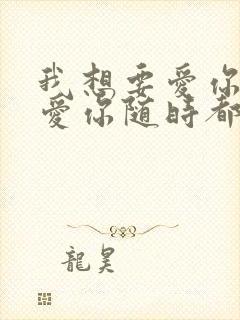 我想要愛你
愛你随時都
龍昊